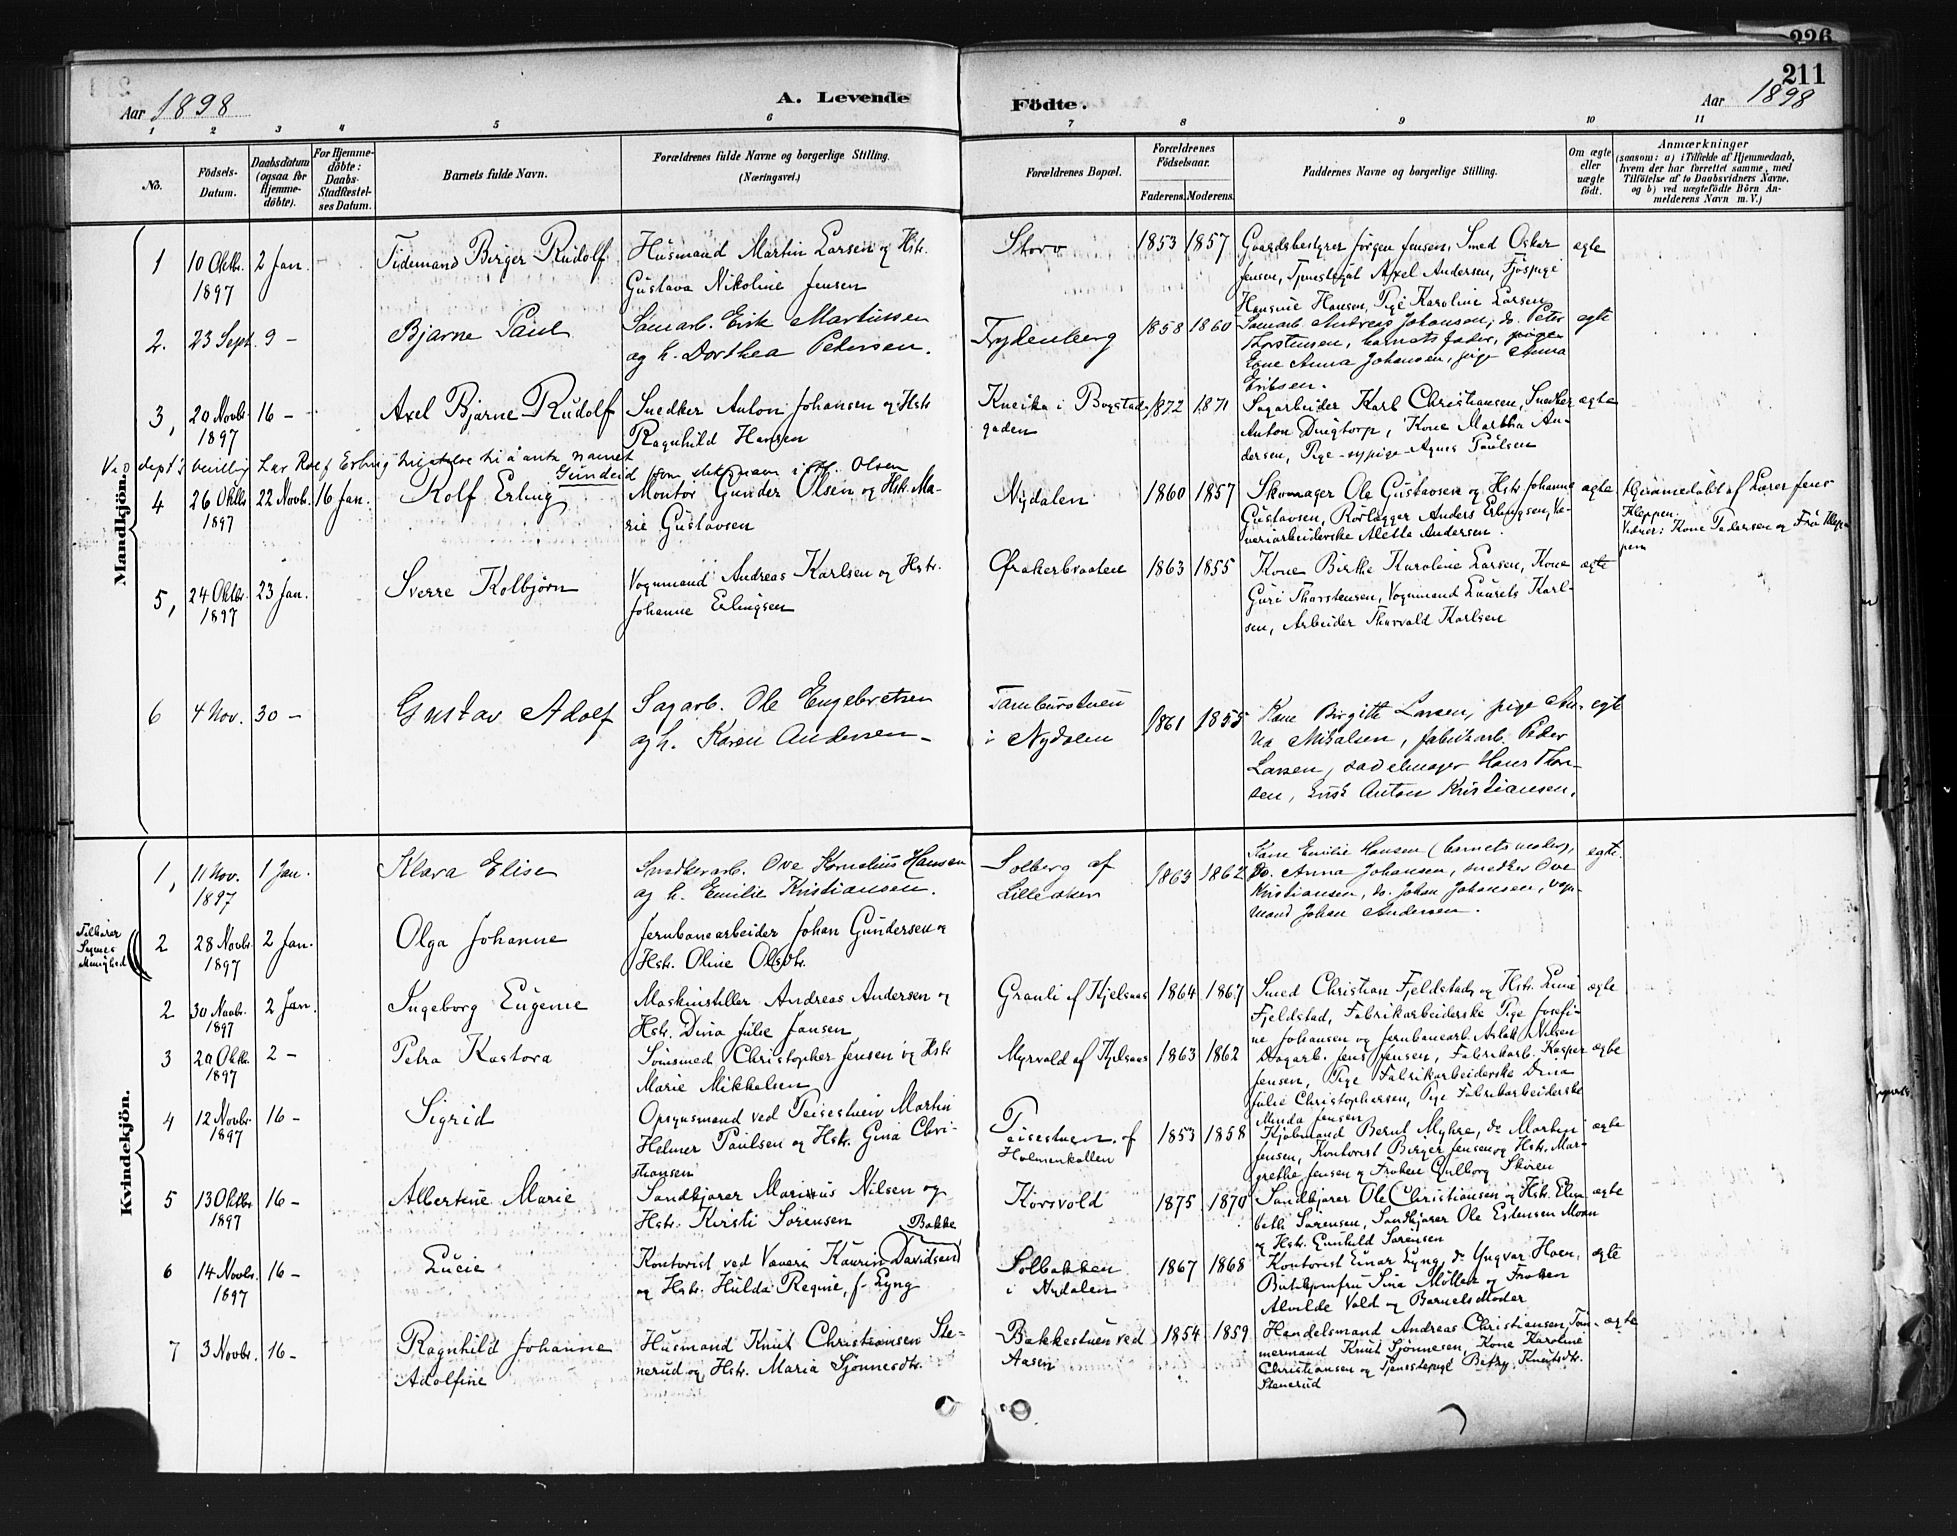 226
211
Aar 1898
A. Levende
Födte.
Aar 1898
1 2 3 4 5 6 7 8 9 10 11
No.
Födsels-Datum.
Daabsdatum (ogsaa for Hjemme-döbte).
For Hjemme-döbte: Daabs-Stadfæstel-ses Datum.
Barnets fulde Navn.
Forældrenes fulde Navne og borgerlige Stilling.
(Næringsvei.)
Forældrenes Bopæl.
Forældrenes Födselsaar.
Faderens. Moderens.
Faddernes Navne og borgerlige Stilling.
Om ægte eller uægte födt.
Anmærkninger
(saasom: a) i Tilfælde af Hjemmedaab,
hvem der har forrettet samme, med
Tilföielse af to Daabsvidners Navne,
og b) ved uægtefödte Börn An-
melderens Navn m. V.)
Mandkjön.
1 10 Oktbr. 1897 2 Jan. Tidemand Birger Rudolf
Husmand Martin Larsen og Hstr.
Gustava Nikoline Jensen
Storo 1853 1857
Gaardsbestyrer Jørgen Jensen, Smed Oskar
Jensen, Tjenestegut Axel Andersen, Fjøspige
Hansine Hansen, Pige Karoline Larsen
ægte
2. 23 Sept. 9 – Bjarne Paul
Samarb. Erik Martinsen
og h. Dorthea Pedersen.
Frydenberg 1858 1860
Samarb. Andreas Johansen; do. Peter
Thorstensen, barnets fader,
Kone Anna Johansen, pige Anna
Eriksen.
egte
3, 20 Novb. 1897 16 – Axel Bjarne Rudolf
Snedker Anton Johansen og Hstr.
Ragnhild Hansen
Kneika i Bogstad-
gaden
1872 1871
Sagarbeider Karl Christiansen, Snedker
Anton Dingtorp, Kone Martha An-
dersen, Pige - sypige Agnes Paulsen
ægte
Ved dept's bevillig. har Rolf Erling tilladelse til å anta navnet
Gundeid som slektnavn i st. f. Olsen
4 26 Oktbr. 1897 22 Novbr. 16 Jan. Rolf Erling
Montør Gunder Olsen og Hstr. Ma-
rie Gustavsen
Nydalen 1860 1857
Skomager Ole Gustavsen og Hstr. Johanne
Gustavsen, Rørlægger Anders Erlingsen, Væ-
veriarbeiderske Mette Andersen.
ægte
Hjemmedøbt af Lærer Jens
Kleppen.
Vidner: Kone Pedersen og Fru Klep-
pen
5, 24 Oktbr. 1897 23 Jan. Sverre Kolbjørn
Vognmand Andreas Karlsen og Hstr.
Johanne Erlingsen
Ørakerbraaten 1863 1855
Kone Birthe Karoline Larsen, Kone
Guri Thorstensen, Vognmand Laurits Karl-
sen, Arbeider Thorvald Karlsen
ægte
6 4 Nov. 30 – Gustav Adolf
Sagarb. Ole Engebretsen
og h. Karen Andersen –
Tambursteen
i Nydalen
1861 1855
Kone Birgitte Larsen, pige An-
na Mikalsen, fabrikarb. Peder
Larsen, sadelmager Hans Thor-
sen, snk. Anton Kristiansen.
egte
Kvindekjön.
1, 11 Nov. 1897 1 Jan. Klara Elise
Snedkerarb. Ove Kornelius Hansen
og h. Emilie Kristiansen.
Solberg af
Lilleaker
1863 1862
Kone Emilie Hansen (barnets moder),
Do. Anna Johansen, snedker Ove
Kristiansen, do. Johan Johansen, vogn-
mand Johan Andersen.
egte
Tilhører
Sagnes
Menighed
2 28 Novbr. 1897 2 Jan. Olga Johanne
Jernbanearbeider Johan Gundersen og
Hstr. Oline Olsdtr.
2 30 Novbr. 1897 2 Jan. Ingeborg Eugenie
Maskinstiller Andreas Andersen og
Hstr. Dina Julie Jansen
Granli af Kjelsaas 1864 1867
Smed Christian Fjeldstad og Hstr. Lina
Fjeldstad, Fabrikarbeiderske Pige Josefi-
ne Johansen og Jernbanearb. Aslak Nilsen
ægte
3 20 Oktbr. 1897 2 – Petra Kastora
Sømsmed Christopher Jensen og Hstr.
Marie Mikkelsen
Myrvold af Kjelsaas 1863 1862
Dagarb. Jens Jensen, Fabrikarb. Kasper
Jensen, Pige Fabrikarbeiderske Dina
Julie Christophersen, Pige Fabrikarbeiderske
Minda Jensen
ægte
4 12 Novbr. 1897 16 – Sigrid
Opsynsmand ved Peisestuen Martin
Helmer Paulsen og Hstr. Gina Chri-
stiansen
Peisestuen af
Holmenkollen
1853 1858
Kjøbmand Bernt Myhre, do Martin
Jensen, Kontorist Birger Jensen og Hstr. Mar-
grethe Jensen og Frøken Gulborg Skøien
ægte
5 13 Oktbr. 1897 16 – Albertine Marie
Sandkjører Marinius Nilsen og
Hstr. Kirsti Sørensen
Korsvold 1875 1870
Sandkjører Ole Christiansen og Hstr. Elisa-
beth Sørensen, Sandkjører Ole Estensen Moen
og Hstr. Gunhild Sørensen
ægte
6 14 Novbr. 1897 16 – Lucie
Bakke
Kontorist ved Væveri Kaurin Davidsen
og Hstr. Hulda Regine, f. Lyng
Solbakken
i Nydalen
1867 1868
Kontorist Einar Lyng, do Yngvar Hoen,
Butikjomfru Sina Møller og Frøken
Alvilde Vold og Barnets Moder
ægte
7 3 Novbr. 16 – Ragnhild Johanne
Adolfine
Husmand Knut Christiansen Ste-
nerud og Hstr. Maria Sjønnesdtr.
Bakkestuen ved
Aasen
1854 1859
Handelsmand Andreas Christiansen, Tøm-
mermand Knut Sjønnesen, Kone Karoline
Christiansen og Tjenestepige Betzy Knutsdtr.
Stenerud
ægte